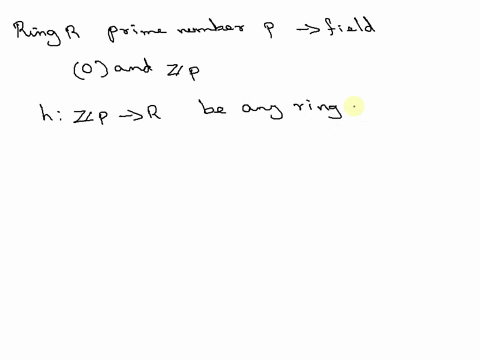 Ring R prime number p → field
(0) and ℤp
h: ℤp → R be any ring